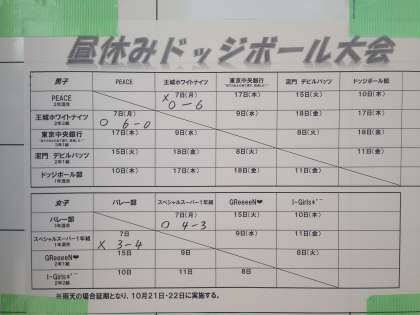 昼休みドッジボール大会
男子 PEACE 王城ホワイトナイツ 東京中央銀行 泥門 デビルバッツ ドッジボール部
PEACE 7日(月) 17日(木) 15日(火) 10日(木)
× 0-6
王城ホワイトナイツ 7日(月) 9日(水) 18日(金) 17日(木)
○ 6-0
東京中央銀行 17日(木) 9日(水) 8日(火) 18日(金)
泥門 デビルバッツ 15日(火) 18日(金) 8日(火) 11日(金)
ドッジボール部 10日(木) 17日(木) 18日(金) 11日(金)
女子 バレー部 スペシャルスーパー1年組 GReeeeN♥ I-Girls
バレー部 7日(月) 15日(火) 10日(木)
○ 4-3
スペシャルスーパー1年組 7日 9日(水) 11日(金)
× 3-4
GReeeeN♥ 15日 9日 8日(火)
I-Girls 10日 11日 8日
※雨天の場合延期となり、10月21日・22日に実施する。